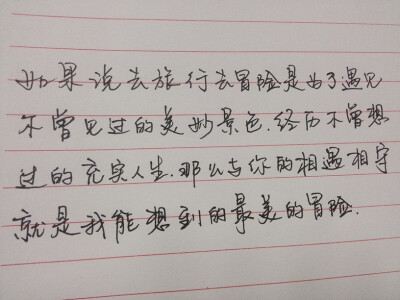 如果说去旅行去冒险是为了遇见
不曾见过的美妙景色.经历不曾想
过的充实人生.那么与你的相遇相守
就是我能想到的最美的冒险.